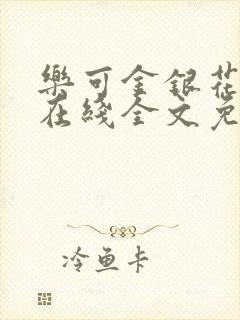 樂可金銀花
在綫全文免
冷魚卡